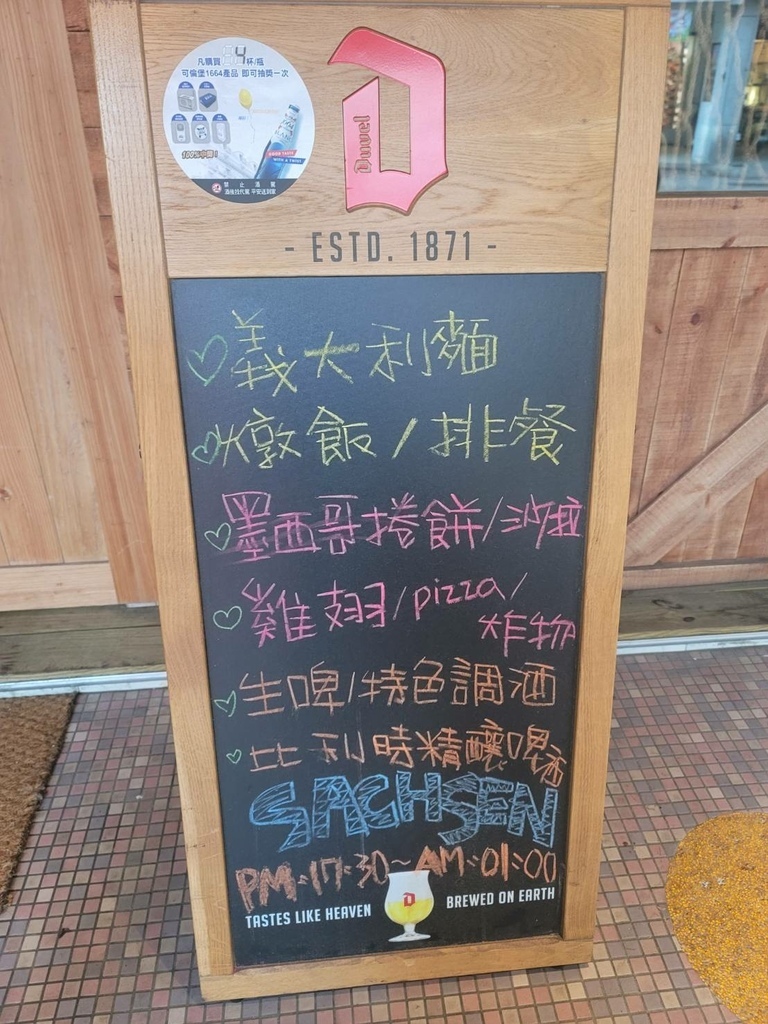 凡購買 84 杯/瓶
可倫堡1664產品 即可抽獎一次
100%中獎!
禁止酒駕
酒後找代駕 平安送到家
Duvel
- ESTD. 1871 -
義大利麵
燉飯/排餐
墨西哥捲餅/沙拉
雞翅/pizza/
炸物
生啤/特色調酒
比利時精釀啤酒
SACHSEN
PM:17:30~AM:01:00
TASTES LIKE HEAVEN
BREWED ON EARTH